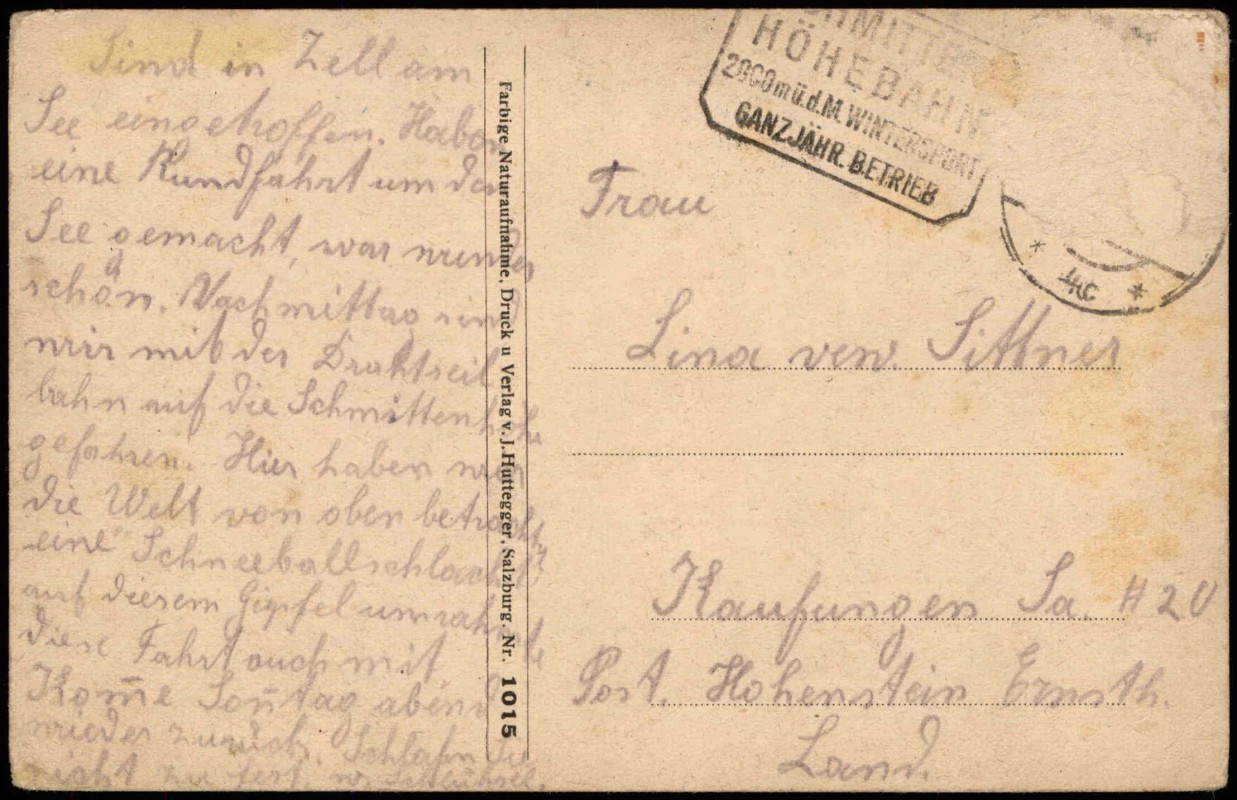 Sind in Zell am
See eingetroffen. Haben
eine Rundfahrt um den
See gemacht, war wunder
schön. Nachmittag sind
wir mit der Drahtseil
bahn auf die Schmittenhöhe
gefahren. Hier haben wir
die Welt von oben betracht,
eine Schneeballschlacht
auf diesem Gipfel umrahmte
diese Fahrt auch mit.
Kom̅e Son̅tag abend
wieder zurück. Schlafen Sie
nicht zu fest, w. Schlüssel.
Farbige Naturaufnahme, Druck u Verlag v. J. Huttegger, Salzburg. Nr. 1015
SCHMITTEN
HÖHEBAHN
2000 m ü.d.M. WINTERSPORT
GANZJÄHR. BETRIEB
* *
Frau
Lina verw. Sittner
Kaufungen Sa. # 20
Post. Hohenstein Ernstth.
Land.